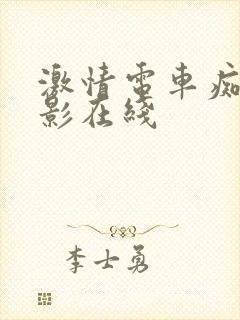 激情電車痴
影在綫
李士勇